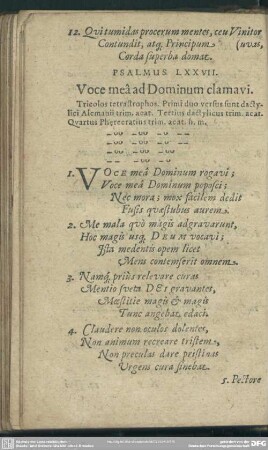 12. Qui tumidas procerum mentes, ceu Vinitor
Contundit, atq; Principum (uvas,
Corda superba domat.
PSALMUS LXXVII.
Voce meâ ad Dominum clamavi.
Tricolos tetrastrophos. Primi duo versus sunt dacty-
lici Alcmanii trim. acat. Tertius dactylicus trim. acat.
Quartus Pherecratius trim. acat. h. m.
1. VOCE meâ Dominum rogavi;
Voce meâ Dominum poposci;
Nec mora; mox facilem dedit
Fusis quæstubus aurem.
2. Me mala quò magis adgravarunt,
Hoc magis usq; DEUM vocavi;
Ista medentis opem licet
Mens contemserit omnem.
3. Namq; priùs relevare curas
Mentio sveta DEI gravantes,
Mœstitie magis & magis
Tunc angebat edaci.
4. Claudere non oculos dolentes,
Non animum recreare tristem,
Non preculas dare pristinas
Urgens cura sinebat.
5. Pectore